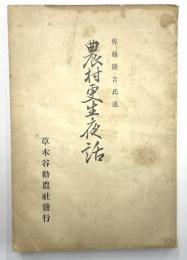 佐藤慶吉氏述
農村更生夜話
草木谷勧農社發行